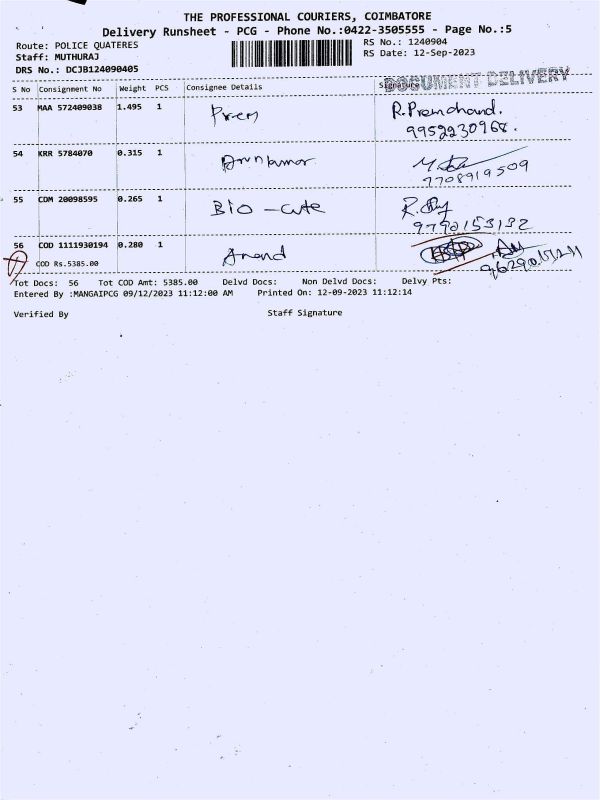 THE PROFESSIONAL COURIERS, COIMBATORE
Delivery Runsheet - PCG - Phone No.:0422-3505555 - Page No.:5
Route: POLICE QUATERES
RS No.: 1240904
Staff: MUTHURAJ
RS Date: 12-Sep-2023
DRS No.: DCJB124090405
DOCUMENT DELIVERY
S No Consignment No Weight PCS Consignee Details Signature
53 MAA 572409038 1.495 1 Prem R.Premchand.
9952230968.
54 KRR 5784070 0.315 1 Arunkumar
7708919509
55 COM 20098595 0.265 1 Bio - Cute
9790153132
56 COD 1111930194 0.280 1 Anand
COD Rs.5385.00
Tot Docs: 56 Tot COD Amt: 5385.00 Delvd Docs: Non Delvd Docs: Delvy Pts:
Entered By :MANGAIPCG 09/12/2023 11:12:00 AM Printed On: 12-09-2023 11:12:14
Verified By Staff Signature